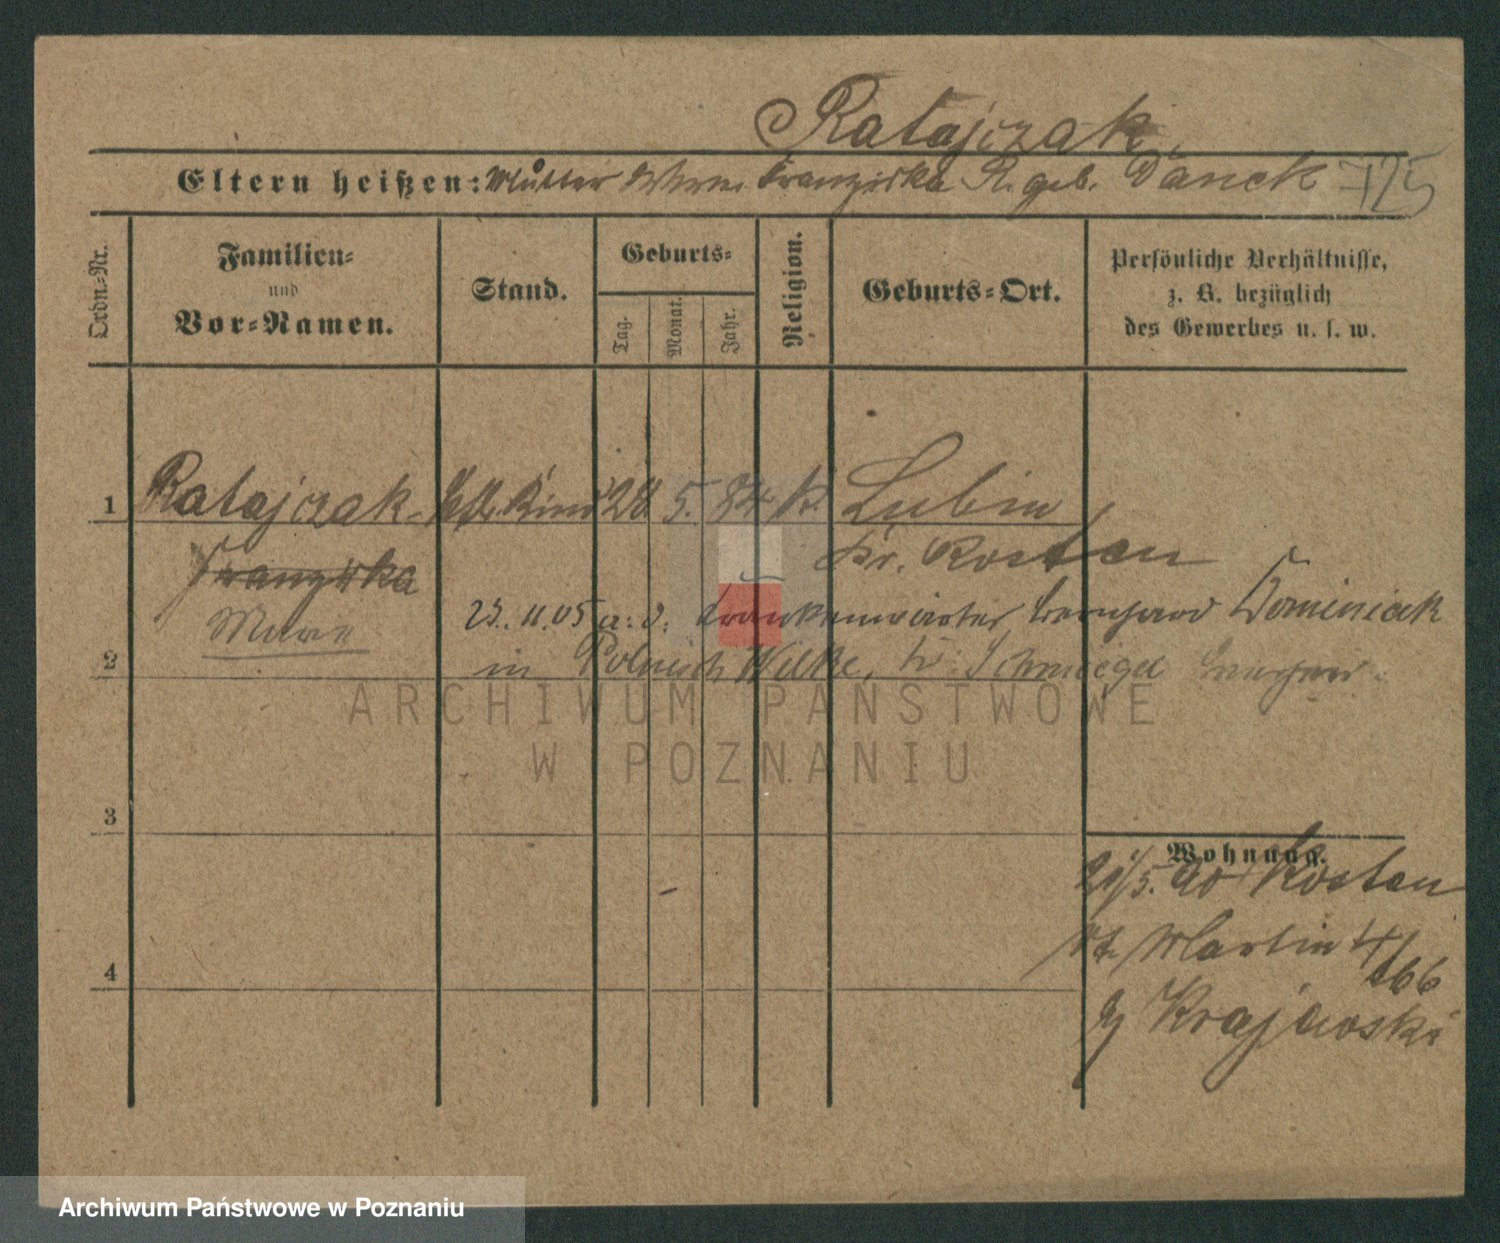 Ratajczak
Eltern heißen: Mutter Wwe. Franziska R. geb. Danek 725
Ordn.-Nr.
Familien-
und
Vor-Namen.
Stand.
Geburts-
Tag.
Monat.
Jahr.
Religion.
Geburts-Ort.
Persönliche Verhältnisse,
z. B. bezüglich
des Gewerbes u. s. w.
1 Ratajczak 28 5. 84 k. Lubin
Kr. Kosten
Franziska
23. 11. 05 a. d. Krankenwärter Bernhard Dominiak
2 in Polnisch Wilke, Kr. Schmiegel
3
Wohnung.
5. 90 Kosten
St. Martin 4/
66
4
Krajewski
ARCHIWUM PAŃSTWOWE
W POZNANIU
Archiwum Państwowe w Poznaniu